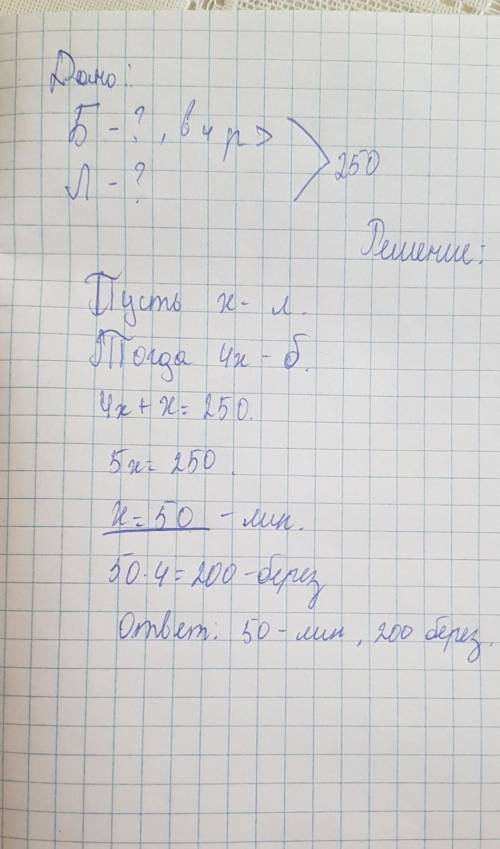 Дано:
Б - ?, в 4 р >
Л - ?
250
Решение:
Пусть х - л.
Тогда 4х - б.
4х + х = 250.
5х = 250.
х = 50 - лип.
50 · 4 = 200 - берез
Ответ: 50 - лип, 200 берез.